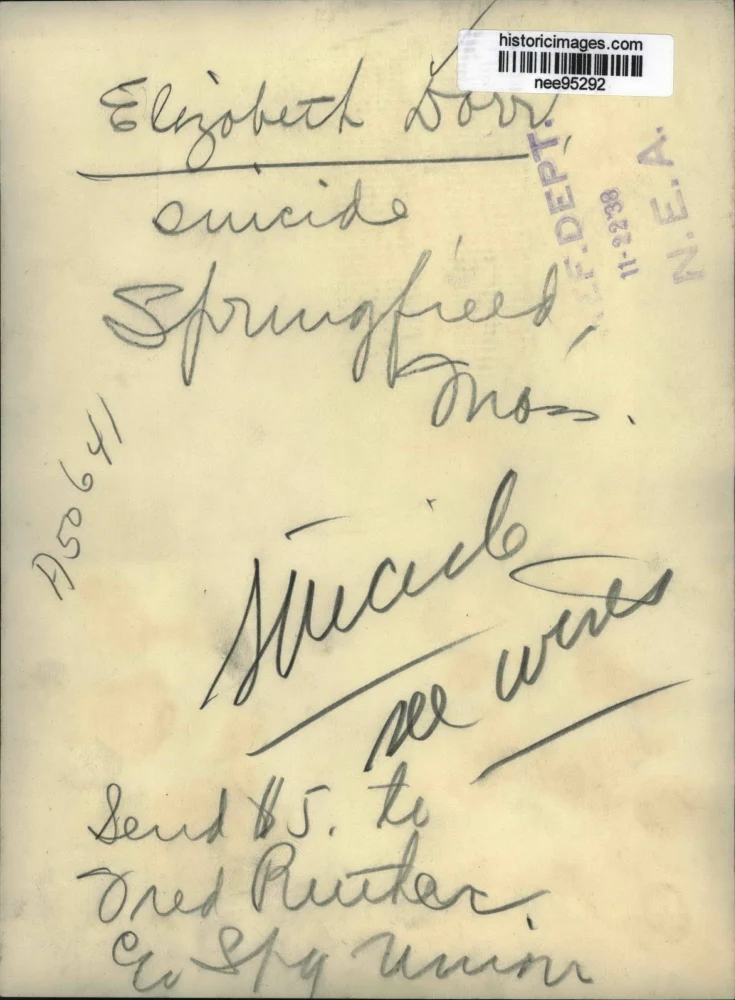 historicimages.com
nee95292
Elizabeth Dorr,
suicide
Springfield,
Mass.
DEPT.
11-2238
N.E.A.
A50641
suicide
see wires
Send $5. to
Fred
c/o Spg Union